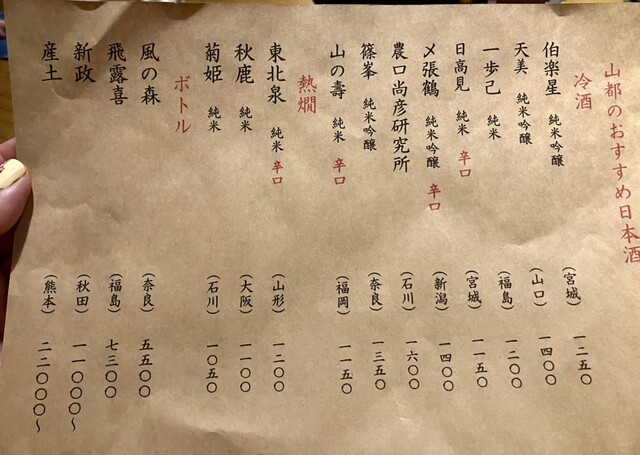 山都のおすすめ日本酒
冷酒
伯楽星 純米吟醸 (宮城) 一二五〇
天美 純米吟醸 (山口) 一四〇〇
一歩己 純米 (福島) 一二〇〇
日高見 純米 辛口 (宮城) 一一五〇
〆張鶴 純米吟醸 辛口 (新潟) 一四〇〇
農口尚彦研究所 (石川) 一六〇〇
篠峯 純米吟醸 (奈良) 一三五〇
山の壽 純米 辛口 (福岡) 一一五〇
熱燗
東北泉 純米 辛口 (山形) 一二〇〇
秋鹿 純米 (大阪) 一一〇〇
菊姫 純米 (石川) 一〇五〇
ボトル
風の森 (奈良) 五五〇〇
飛露喜 (福島) 七三〇〇
新政 (秋田) 一一〇〇〇〜
産土 (熊本) 二二〇〇〇〜